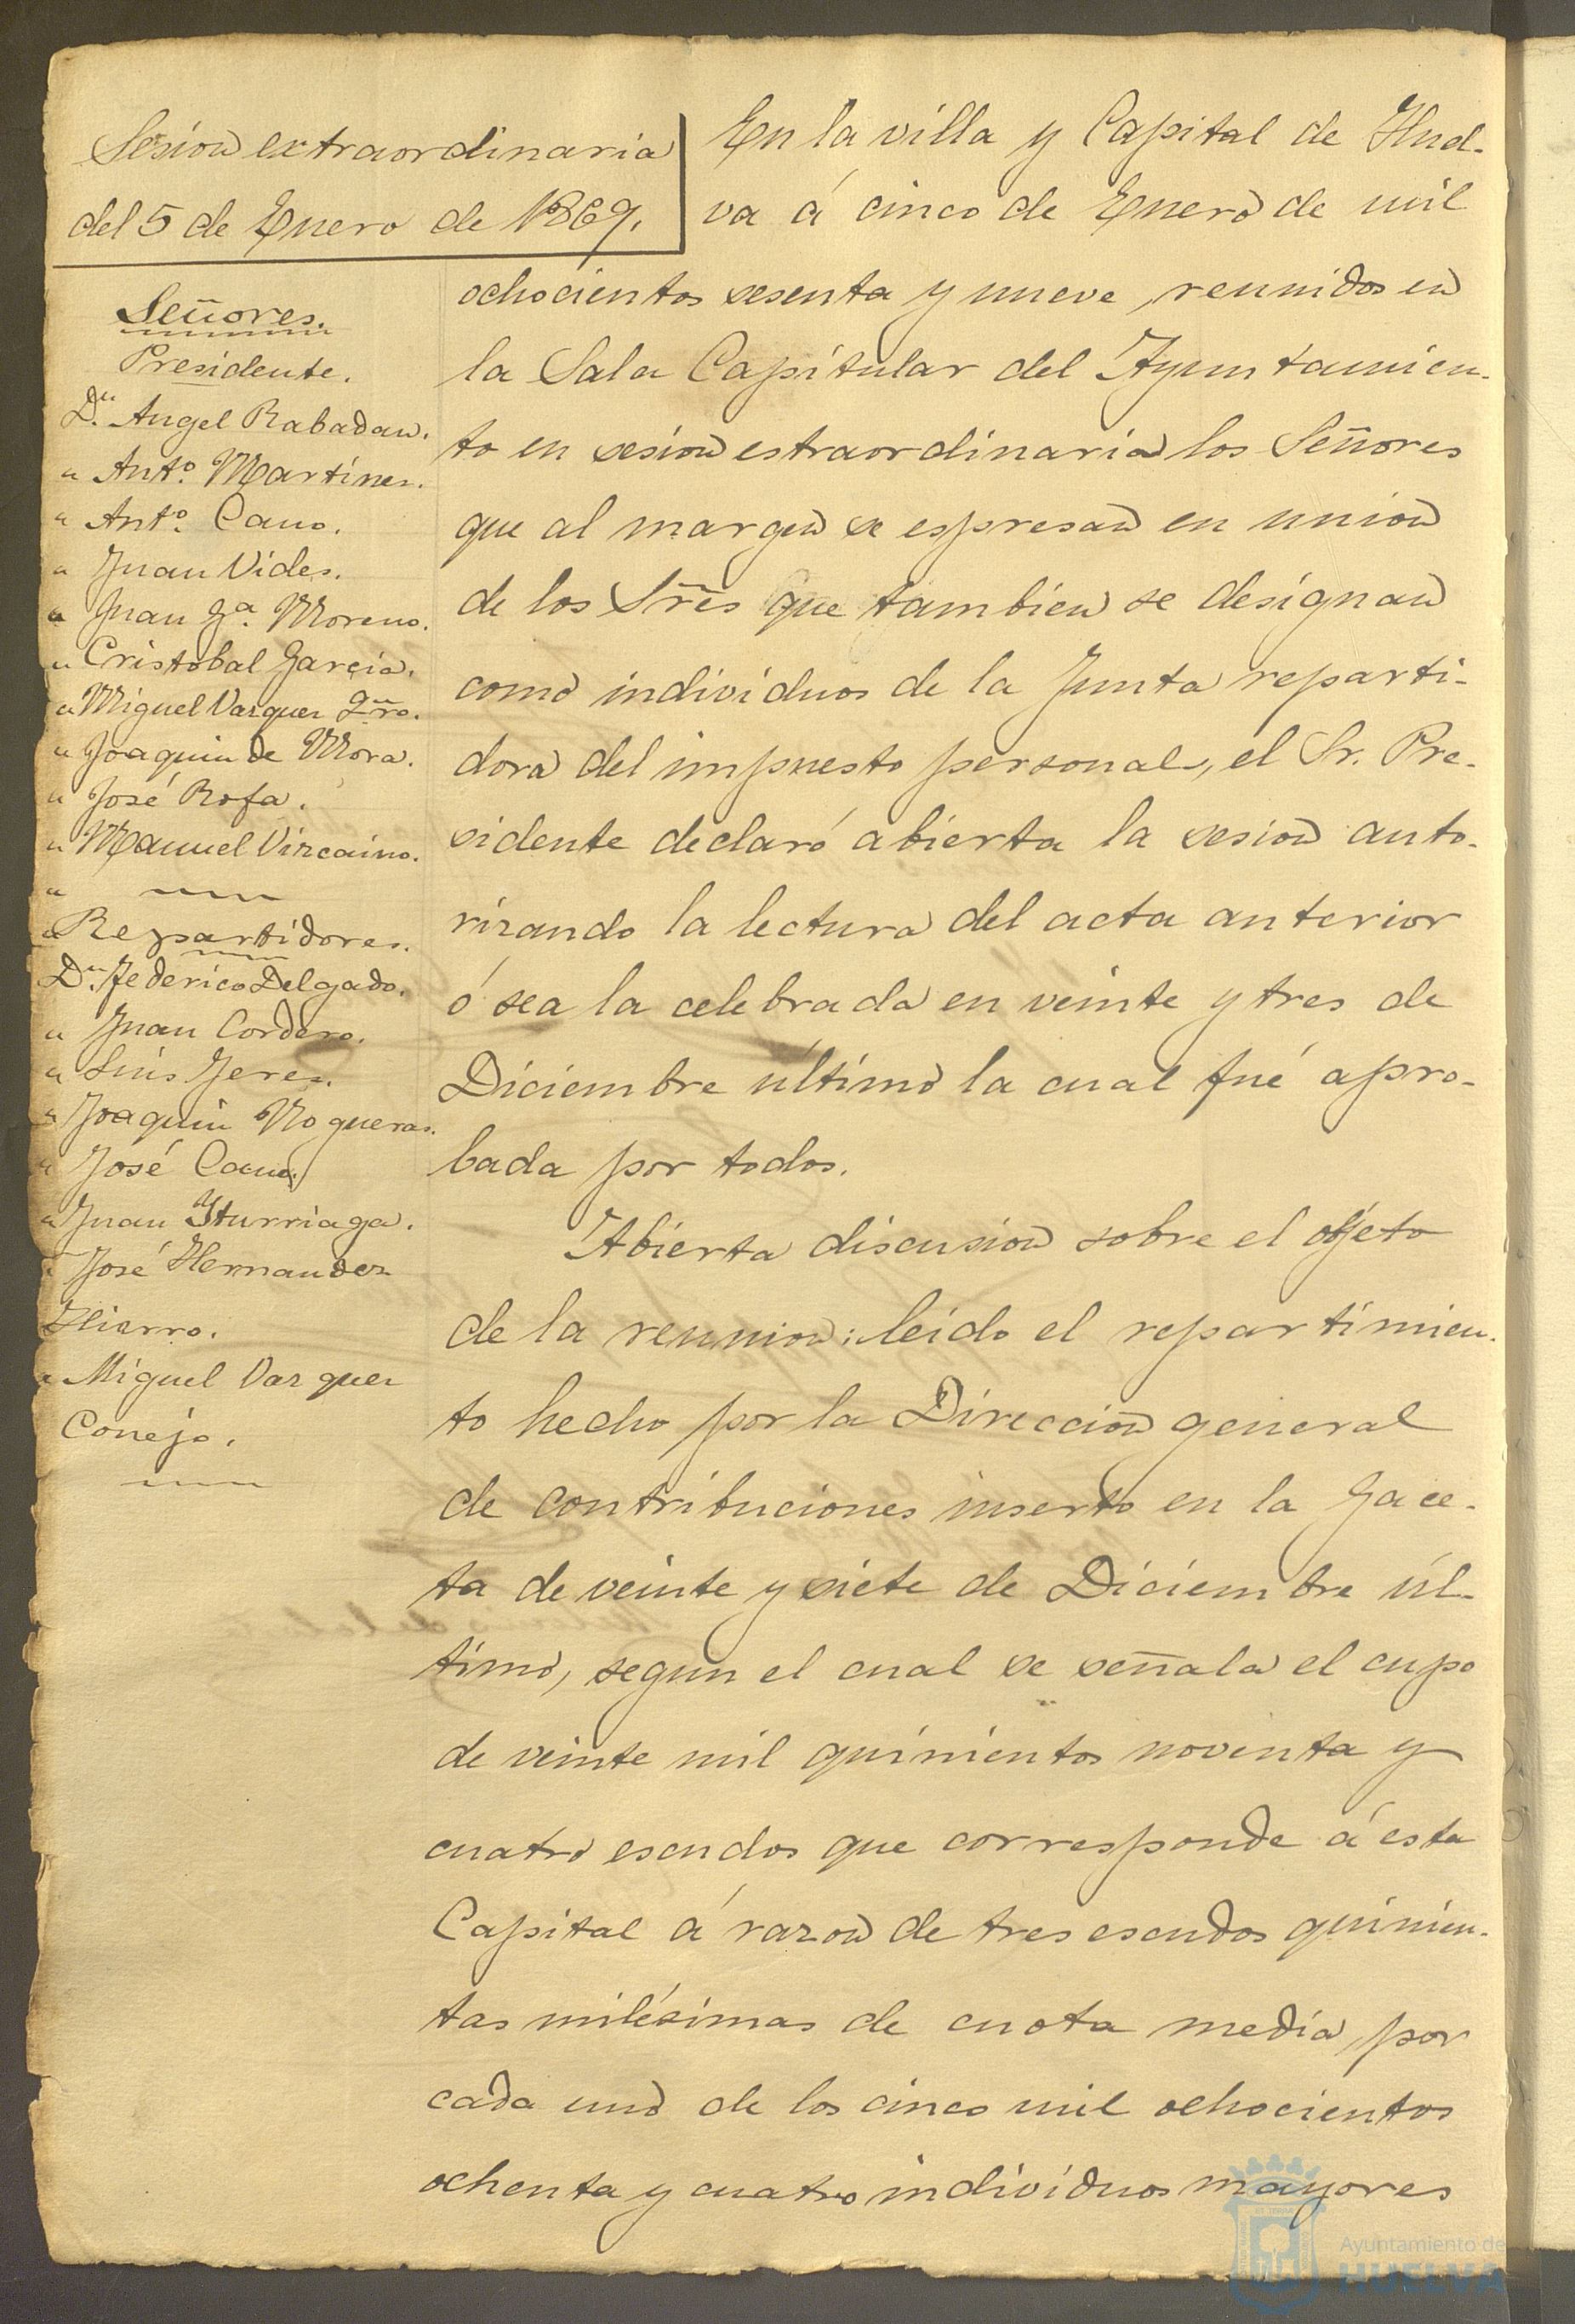 Sesion extraordinaria
del 5 de Enero de 1869.
Señores.
Presidente.
Dn. Angel Rabadan.
" Anto. Martinez.
" Anto. Cano.
" Juan Vides.
" Juan Ga. Moreno.
" Cristobal Garcia.
" Miguel Vazquez
" Joaquin de Mora.
" José Rofa.
" Manuel Vizcaino.
"
" Repartidores.
Dn. Federico Delgado.
" Juan Cordero.
" Luis Jerez.
" Joaquin Nogueras.
" José Cano.
" Juan Yturriaga.
" José Hernandez
Hierro.
" Miguel Vazquez
Conejo.
En la villa y Capital de Huel-
va á cinco de Enero de mil
ochocientos sesenta y nueve, reunidos en
la Sala Capitular del Ayuntamien-
to en sesion estraordinaria los Señores
que al margen se espresan en union
de los Sres que tambien se designan
como individuos de la Junta reparti-
dora del impuesto personal, el Sr. Pre-
sidente declaró abierta la sesion auto-
rizando la lectura del acta anterior
ó sea la celebrada en veinte y tres de
Diciembre último la cual fué apro-
bada por todos.
Abierta discusion sobre el objeto
de la reunion: leido el repartimien-
to hecho por la Direccion general
de contribuciones inserto en la Gace-
ta de veinte y siete de Diciembre úl-
timo, segun el cual se señala el cupo
de veinte mil quinientos noventa y
cuatro escudos que corresponde á esta
Capital á razon de tres escudos quinien-
tas milésimas de cuota media, por
cada uno de los cinco mil ochocientos
ochenta y cuatro individuos mayores
Ayuntamiento de
HUELVA